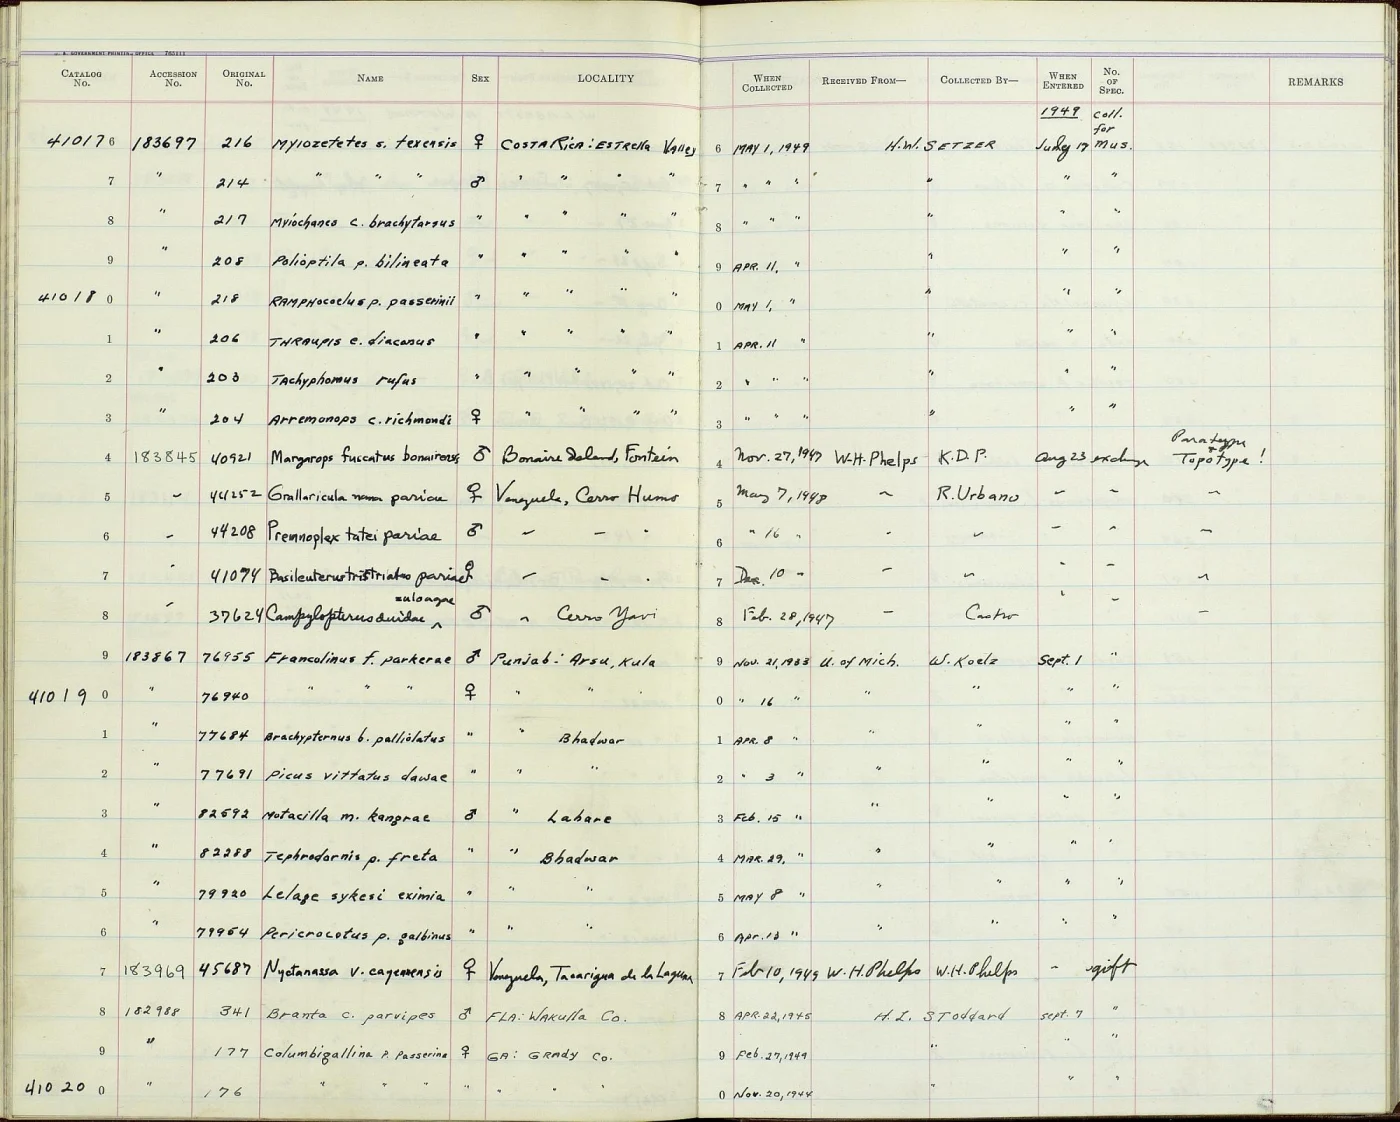 U. S. GOVERNMENT PRINTING OFFICE 765111
CATALOG No. ACCESSION No. ORIGINAL No. NAME SEX LOCALITY WHEN COLLECTED RECEIVED FROM— COLLECTED BY— WHEN ENTERED No. OF SPEC. REMARKS
1949 coll. for
410176 183697 216 Myiozetetes s. texensis ♀ COSTA RICA: ESTRELLA Valley 6 MAY 1, 1949 H.W. SETZER July 19 mus.
7 " 214 " " " ♂ " " " " 7 " " " " " "
8 " 217 Myiochanes c. brachytarsus " " " " " 8 " " " " " "
9 " 208 Polioptila p. bilineata " " " " " 9 APR. 11, " " " "
410180 " 218 RAMPHOCOELUS p. passerinii " " " " " 0 MAY 1, " " " "
1 " 206 THRAUPIS e. diaconus " " " " " 1 APR. 11 " " " "
2 " 203 TAchyphonus rufus " " " " " 2 " " " " " "
3 " 204 Arremonops c. richmondi ♀ " " " " 3 " " " " " "
4 183845 40921 Margarops fuscatus bonairensis ♂ Bonaire Island, Fontein 4 Nov. 27, 1947 W.H. Phelps K.D.P. Aug 23 exchange Paratype & Topotype!
5 " 44252 Grallaricula nana pariae ♀ Venezuela, Cerro Humo 5 May 7, 1948 " R. Urbano " " "
6 " 44208 Premnoplex tatei pariae ♂ " " " 6 " 16 " " " " " "
7 " 41074 Basileuterus tristriatus pariae ♀ " " " 7 Dec. 10 " " " " " "
8 " 37624 Campylopterus duidae zuloagae ♂ " Cerro Yavi 8 Feb. 28, 1947 " Castro " " "
9 183867 76955 Francolinus f. parkerae ♂ Punjab: Arsu, Kulu 9 Nov. 21, 1933 U. of Mich. W. Koelz Sept. 1 "
410190 " 76940 " " " ♀ " " " 0 " 16 " " " " "
1 " 77684 Brachypternus b. palliolatus " " Bhadwar 1 APR. 8 " " " " "
2 " 77691 Picus vittatus dawae " " " 2 " 3 " " " " "
3 " 82592 Motacilla m. kangrae ♂ " Lahare 3 Feb. 15 " " " " "
4 " 82288 Tephrodornis p. freta " " Bhadwar 4 MAR. 29, " " " " "
5 " 79920 Lalage sykesi eximia " " " 5 MAY 8 " " " " "
6 " 79954 Pericrocotus p. galbinus " " " 6 Apr. 13 " " " " "
7 183969 45687 Nyctanassa v. cayennensis ♀ Venezuela, Tacarigua de la Laguna 7 Feb 10, 1949 W.H. Phelps W.H. Phelps " gift
8 182988 341 Branta c. parvipes ♂ FLA: WAKULLA Co. 8 APR. 22, 1945 H.L. Stoddard Sept. 7 "
9 " 177 Columbigallina p. passerina ♀ GA: GRADY Co. 9 Feb. 27, 1944 " " "
410200 " 176 " " " " " " " 0 Nov. 20, 1944 " " "